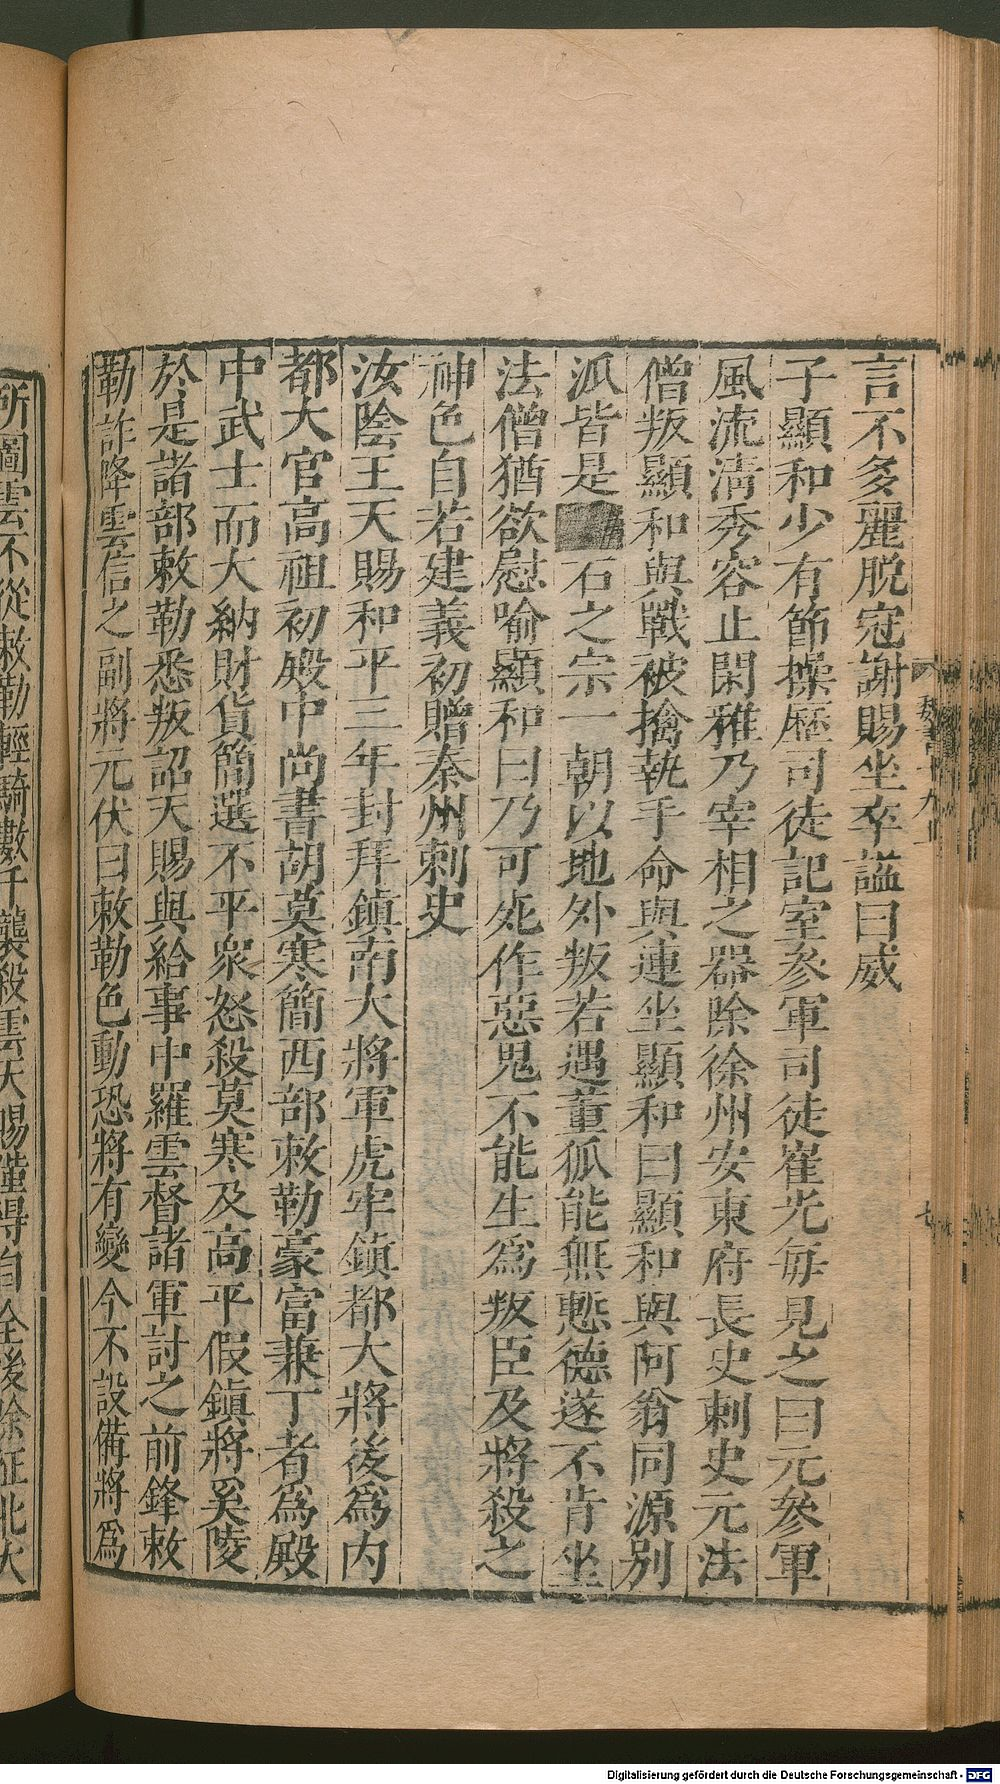 言不多麗脫冠謝賜坐卒謚曰威
子顯和少有節操歷司徒記室參軍司徒崔光每見之曰元參軍
風流清秀容止閑雅乃宰相之器除徐州安東府長史刺史元法
僧叛顯和與戰被擒執手命與連坐顯和曰顯和與阿翁同源別
派皆是石之宗一朝以地外叛若遇董狐能無慙德遂不肯坐
法僧猶欲慰喻顯和曰乃可死作惡鬼不能生爲叛臣及將殺之
神色自若建義初贈秦州刺史
汝陰王天賜和平三年封拜鎮南大將軍虎牢鎮都大將後爲內
都大官高祖初殿中尚書胡莫寒簡西部敕勒豪富兼丁者爲殿
中武士而大納財貨簡選不平衆怒殺莫寒及高平假鎮將奚陵
於是諸部敕勒悉叛詔天賜與給事中羅雲督諸軍討之前鋒敕
勒詐降雲信之副將元伏曰敕勒色動恐將有變今不設備將爲
所圖雲不從敕勒輕騎數千襲殺雲天賜僅得自全後除征北大
魏書十九上
七
Digitalisierung gefördert durch die Deutsche Forschungsgemeinschaft - DFG